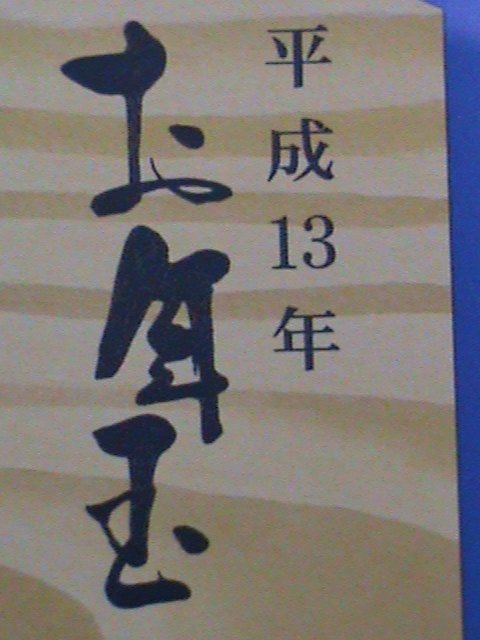 平成13年
お年玉